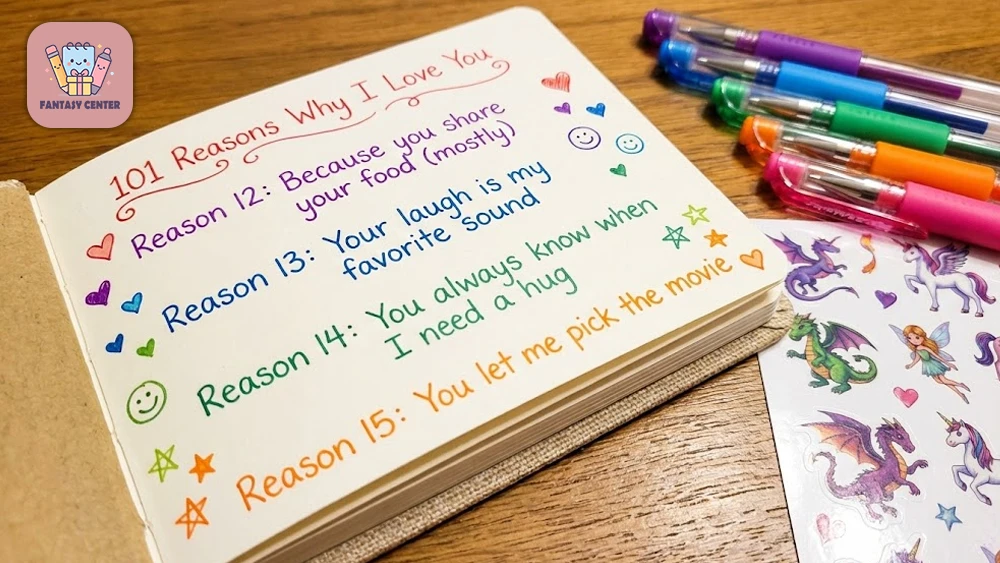 FANTASY CENTER
101 Reasons Why I Love You
Reason 12: Because you share
your food (mostly)
Reason 13: Your laugh is my
favorite sound
Reason 14: You always know when
I need a hug
Reason 15: You let me pick the movie